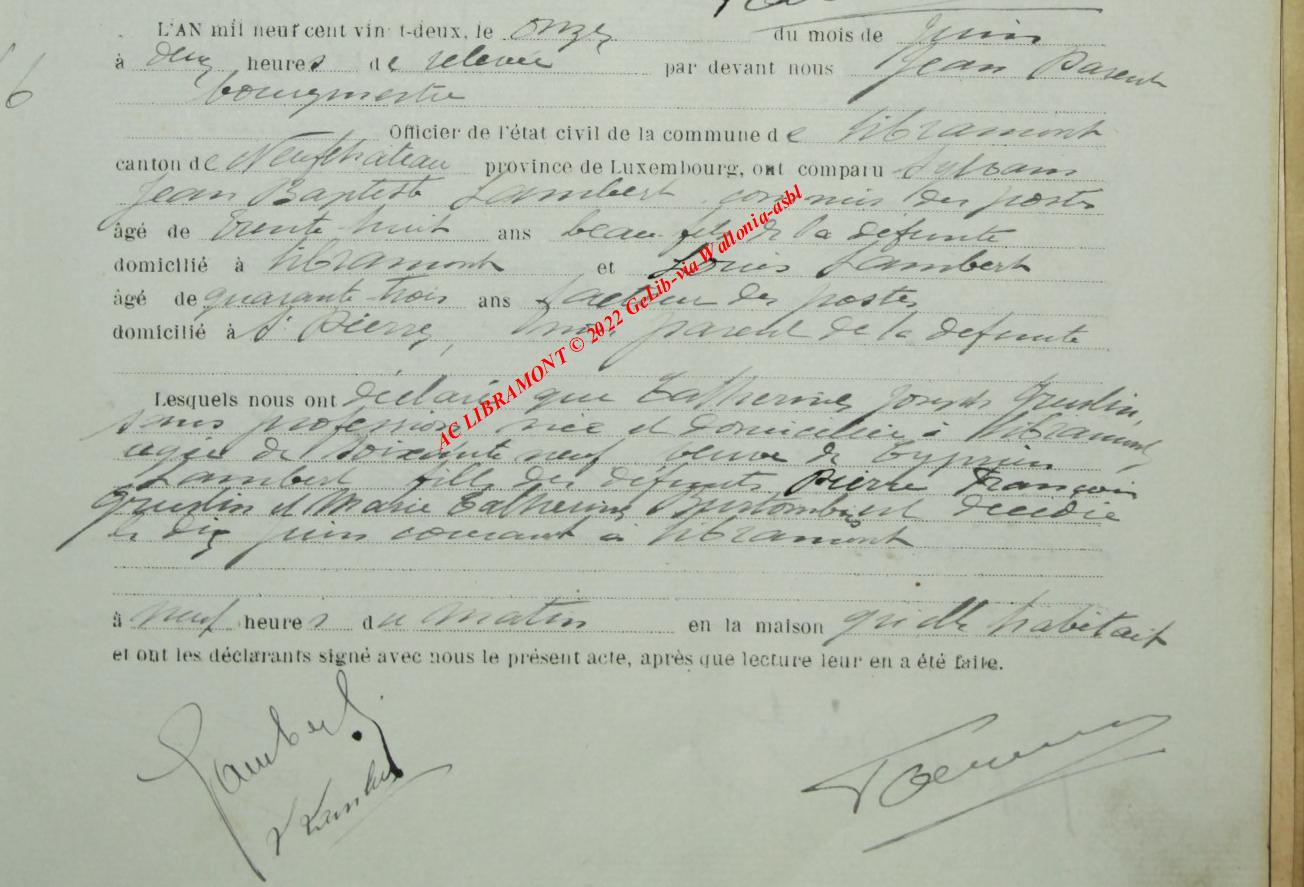 L'AN mil neuf cent vin t-deux, le onze du mois de juin
6
à deux heures de relevée par devant nous Jean Parent
bourgmestre
Officier de l'état civil de la commune de Libramont
canton de Neufchâteau province de Luxembourg, ont comparu Sylvain
Jean Baptiste Lambert commis des postes
âgé de trente huit ans beau fils de la défunte
domicilié à Libramont et Louis Lambert
âgé de quarante trois ans facteur des postes
domicilié à St Pierre, non parent de la défunte
Lesquels nous ont déclaré que Catherine Joseph
sans profession née et domiciliée à Libramont,
agée de soixante neuf veuve de Cyprien
Lambert fille des défunts Pierre François
et Marie Catherine décédée
le dix juin courant à Libramont
à neuf heures du matin en la maison qu'elle habitait
et ont les déclarants signé avec nous le présent acte, après que lecture leur en a été faite.
Lambert
Lambert
AC LIBRAMONT © 2022 GeLib-via Wallonia-asbl